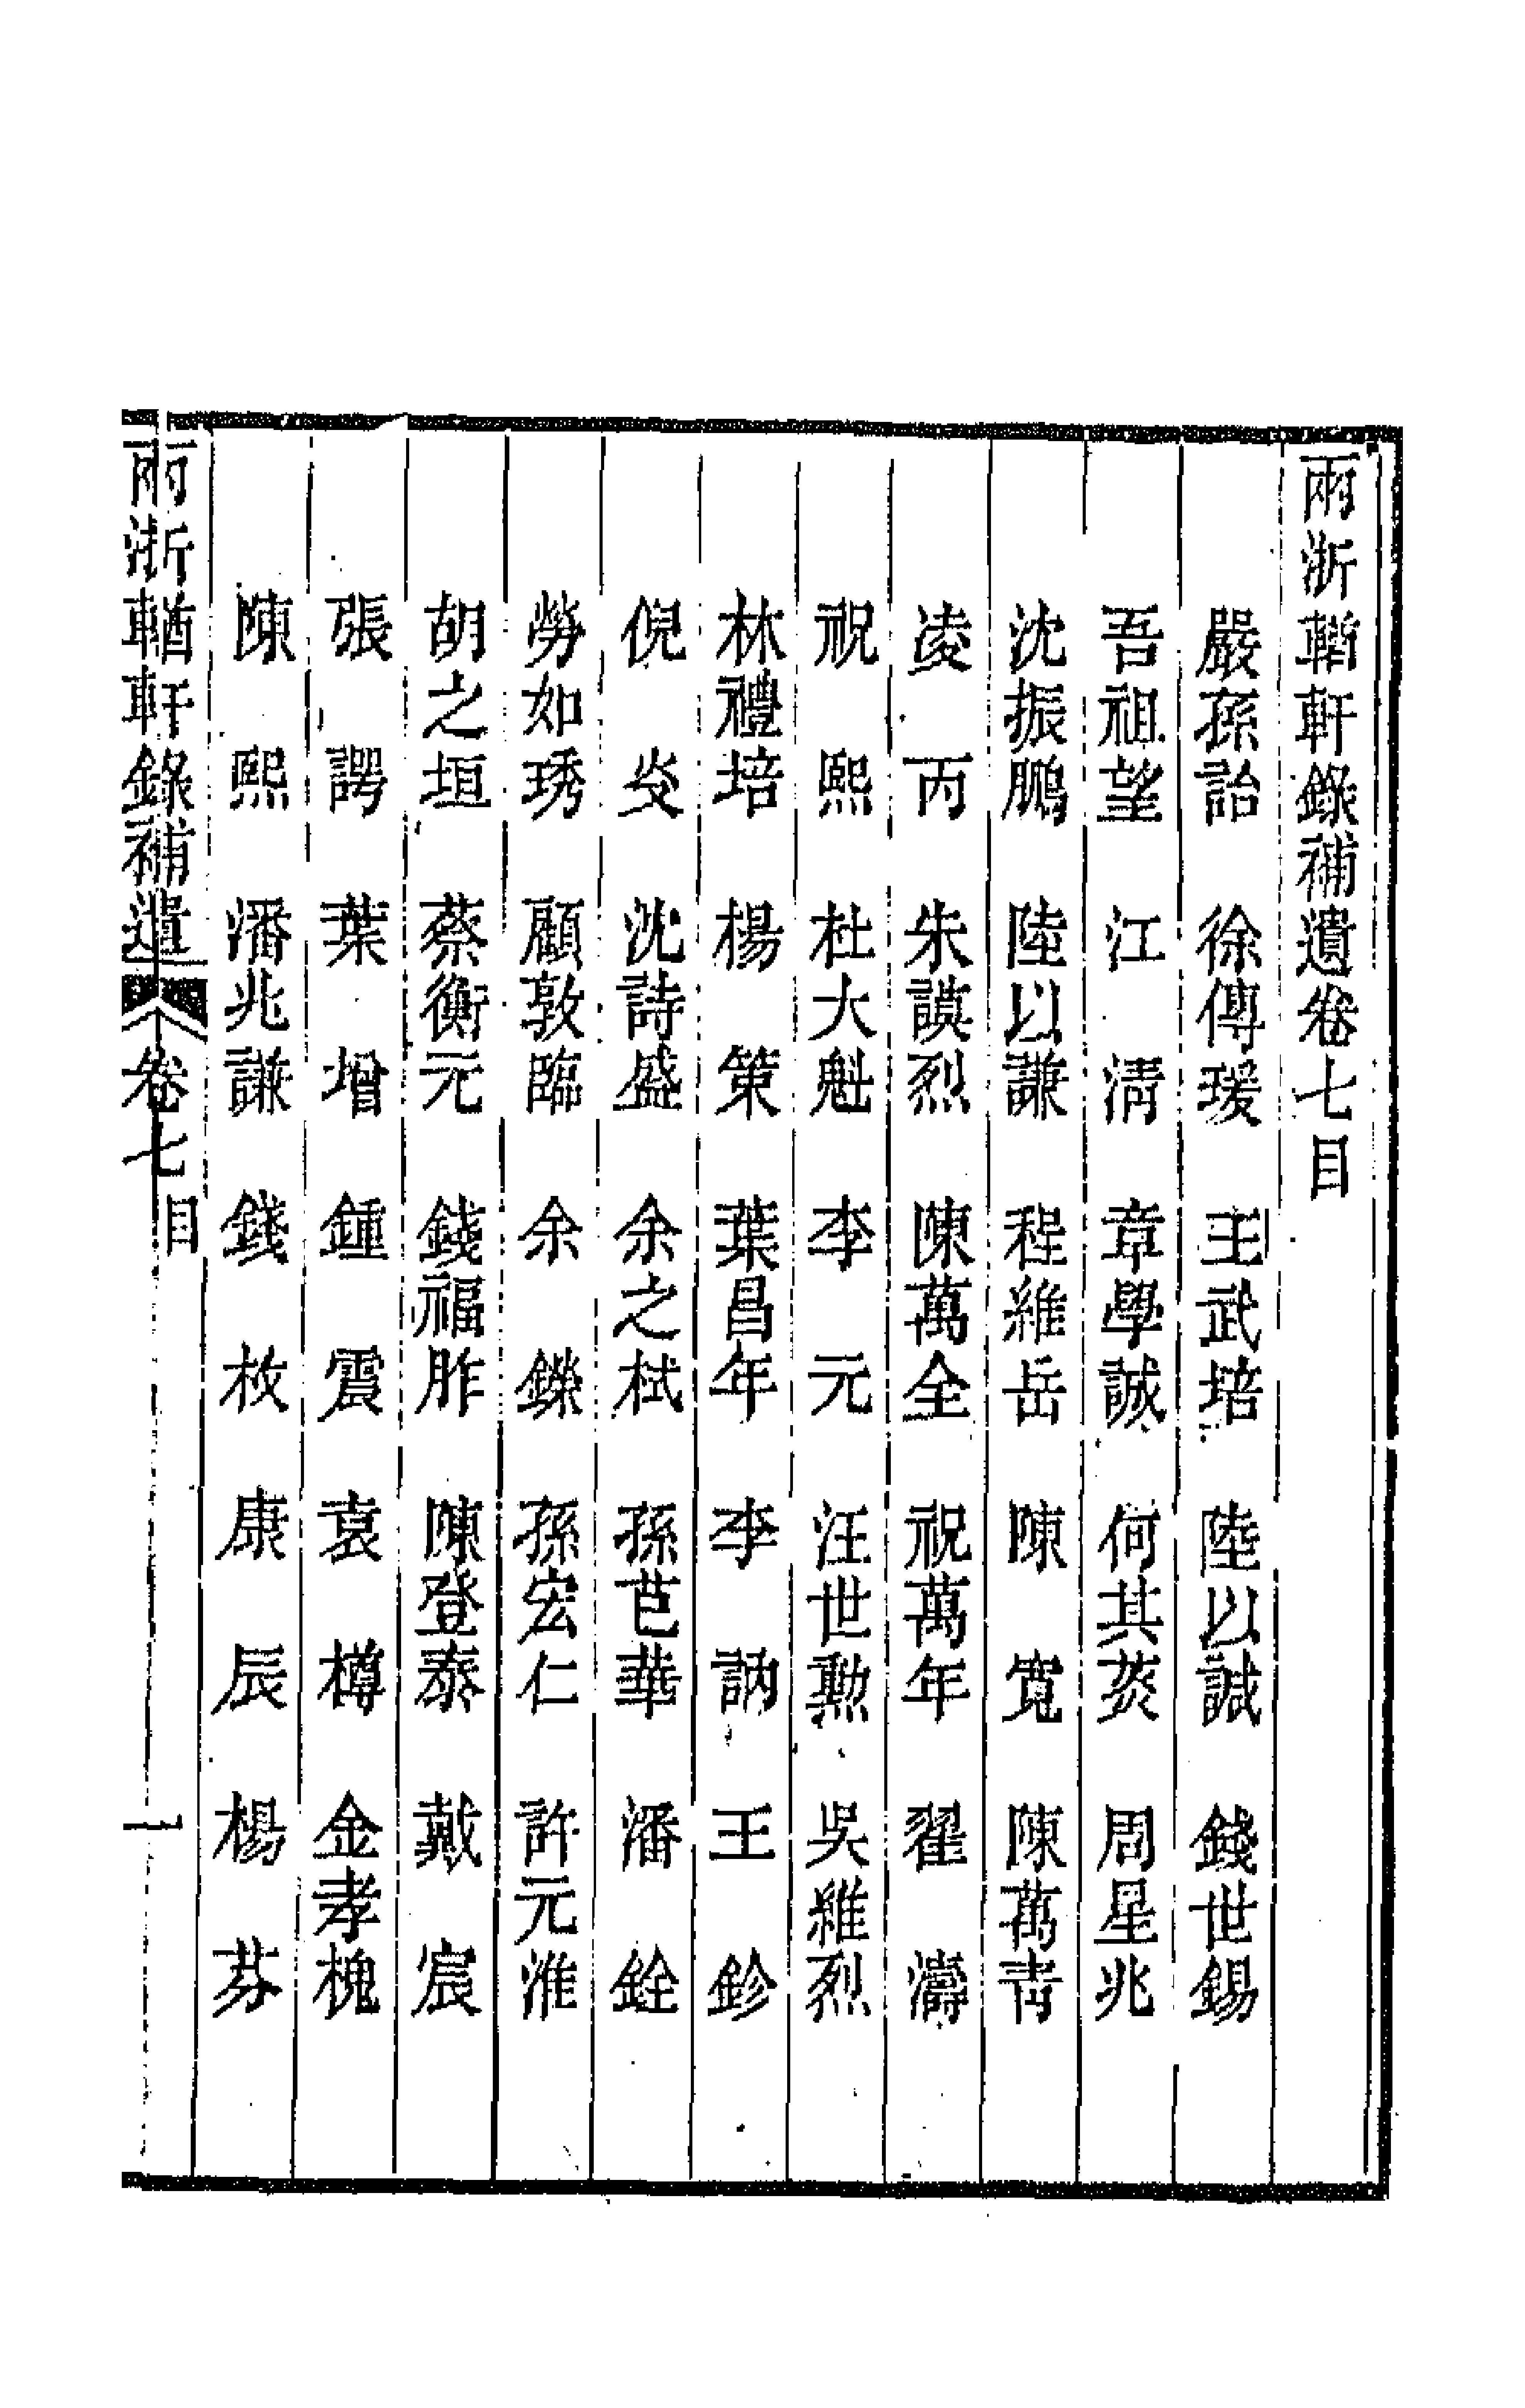 兩浙輶軒錄補遺卷七目
嚴孫詒 徐傳瑗 王武培 陸以諴 錢世錫
吾祖望 江清 章學誠 何其菼 周星兆
沈振鵬 陸以謙 程維岳 陳寬 陳萬青
凌丙 朱謨烈 陳萬全 祝萬年 翟濤
祝熙 杜大魁 李元 汪世勲 吳維烈
林禮培 楊策 葉昌年 李訥 王鉁
倪炎 沈詩盛 余之栻 孫芑華 潘銓
勞如琇 顧敦臨 余鑅 孫宏仁 許元淮
胡之垣 蔡衡元 錢福胙 陳登泰 戴宸
張諤 葉增 鍾震 袁樽 金孝槐
陳熙 潘兆謙 錢枚 康辰 楊芬
兩浙輶軒錄補遺 卷七目 一